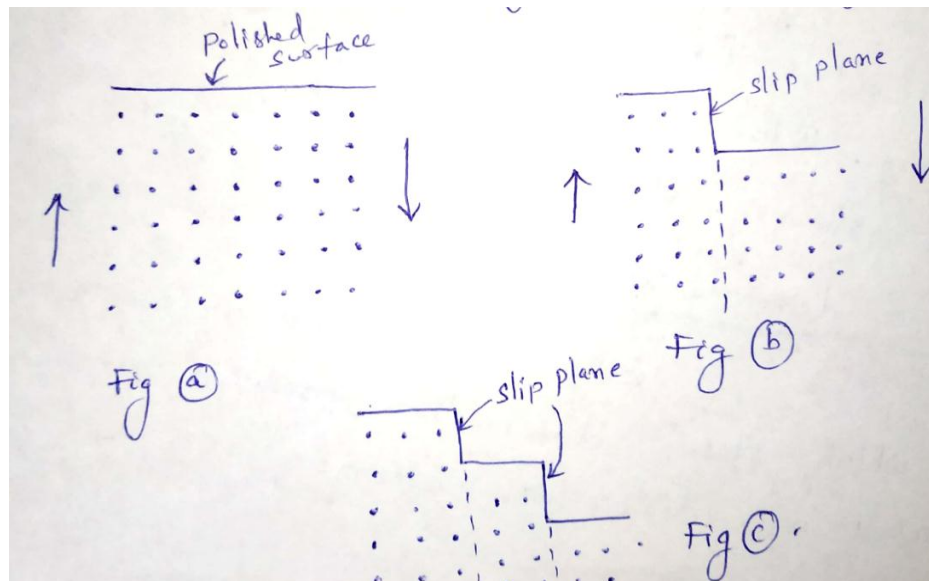 Polished
surface
slip plane
Fig (a)
Fig (b)
slip plane
Fig (c).